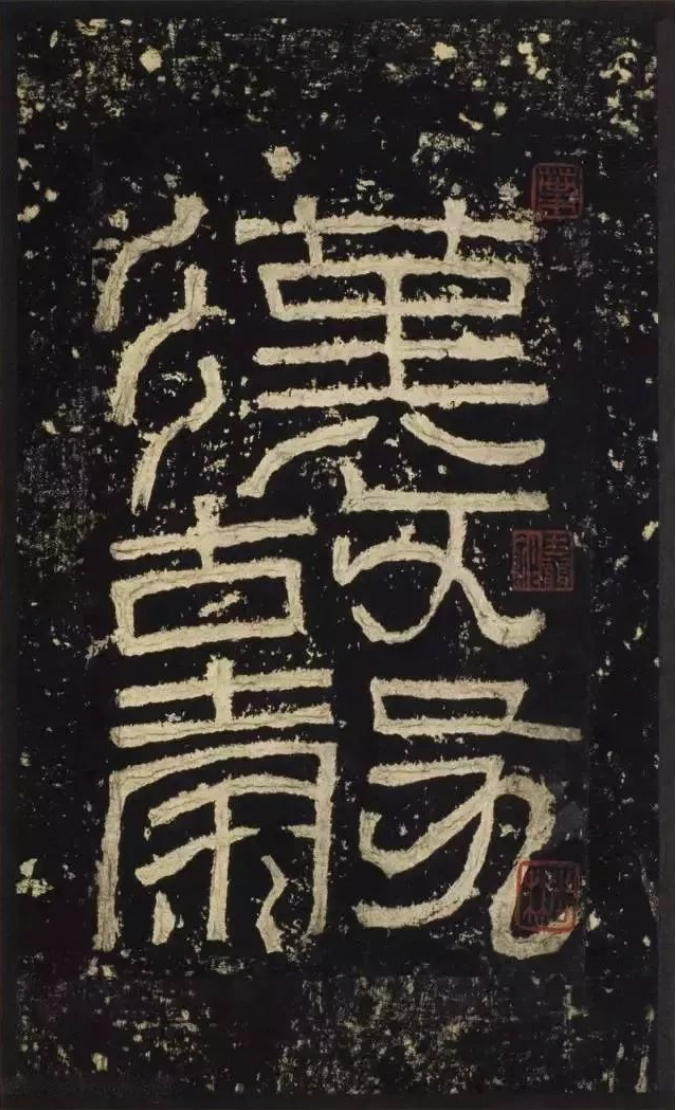 漢
故
穀